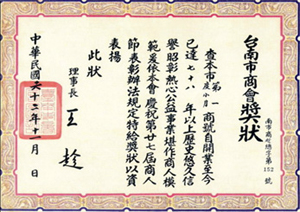 台南市商會獎狀
南市商總字第
152
號
查本市第一
度小月商號自開業至今
已達七十八年以上歷史悠久信
譽昭孚熱心公益事業堪作商人模
範爰依本會慶祝第廿七屆商人
節表彰辦法規定特給獎狀以資
表揚
此狀
理事長
王
中華民國七十二年十一月 日